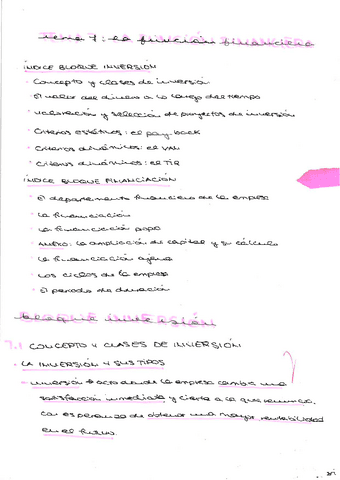 tema 7: la función financiera
ÍNDICE BLOQUE INVERSIÓN
· Concepto y clases de inversión
· El valor del dinero a lo largo del tiempo
· Valoración y selección de proyectos de inversión
· Criterios estáticos: el pay-back
· Criterios dinámicos: el VAN
· Criterios dinámicos: el TIR
ÍNDICE BLOQUE FINANCIACIÓN
· El departamento financiero de la empresa
· La financiación
· La financiación propia
· ANEXO: la ampliación de capital y su cálculo
· La financiación ajena
· Los ciclos de la empresa
· El periodo de duración
bloque inversión
7.1 CONCEPTO Y CLASES DE INVERSIÓN
· LA INVERSIÓN Y SUS TIPOS
- Inversión → acto donde la empresa cambia una
satisfacción inmediata y cierta a la que renuncia,
con esperanza de obtener una mayor rentabilidad
en el futuro.